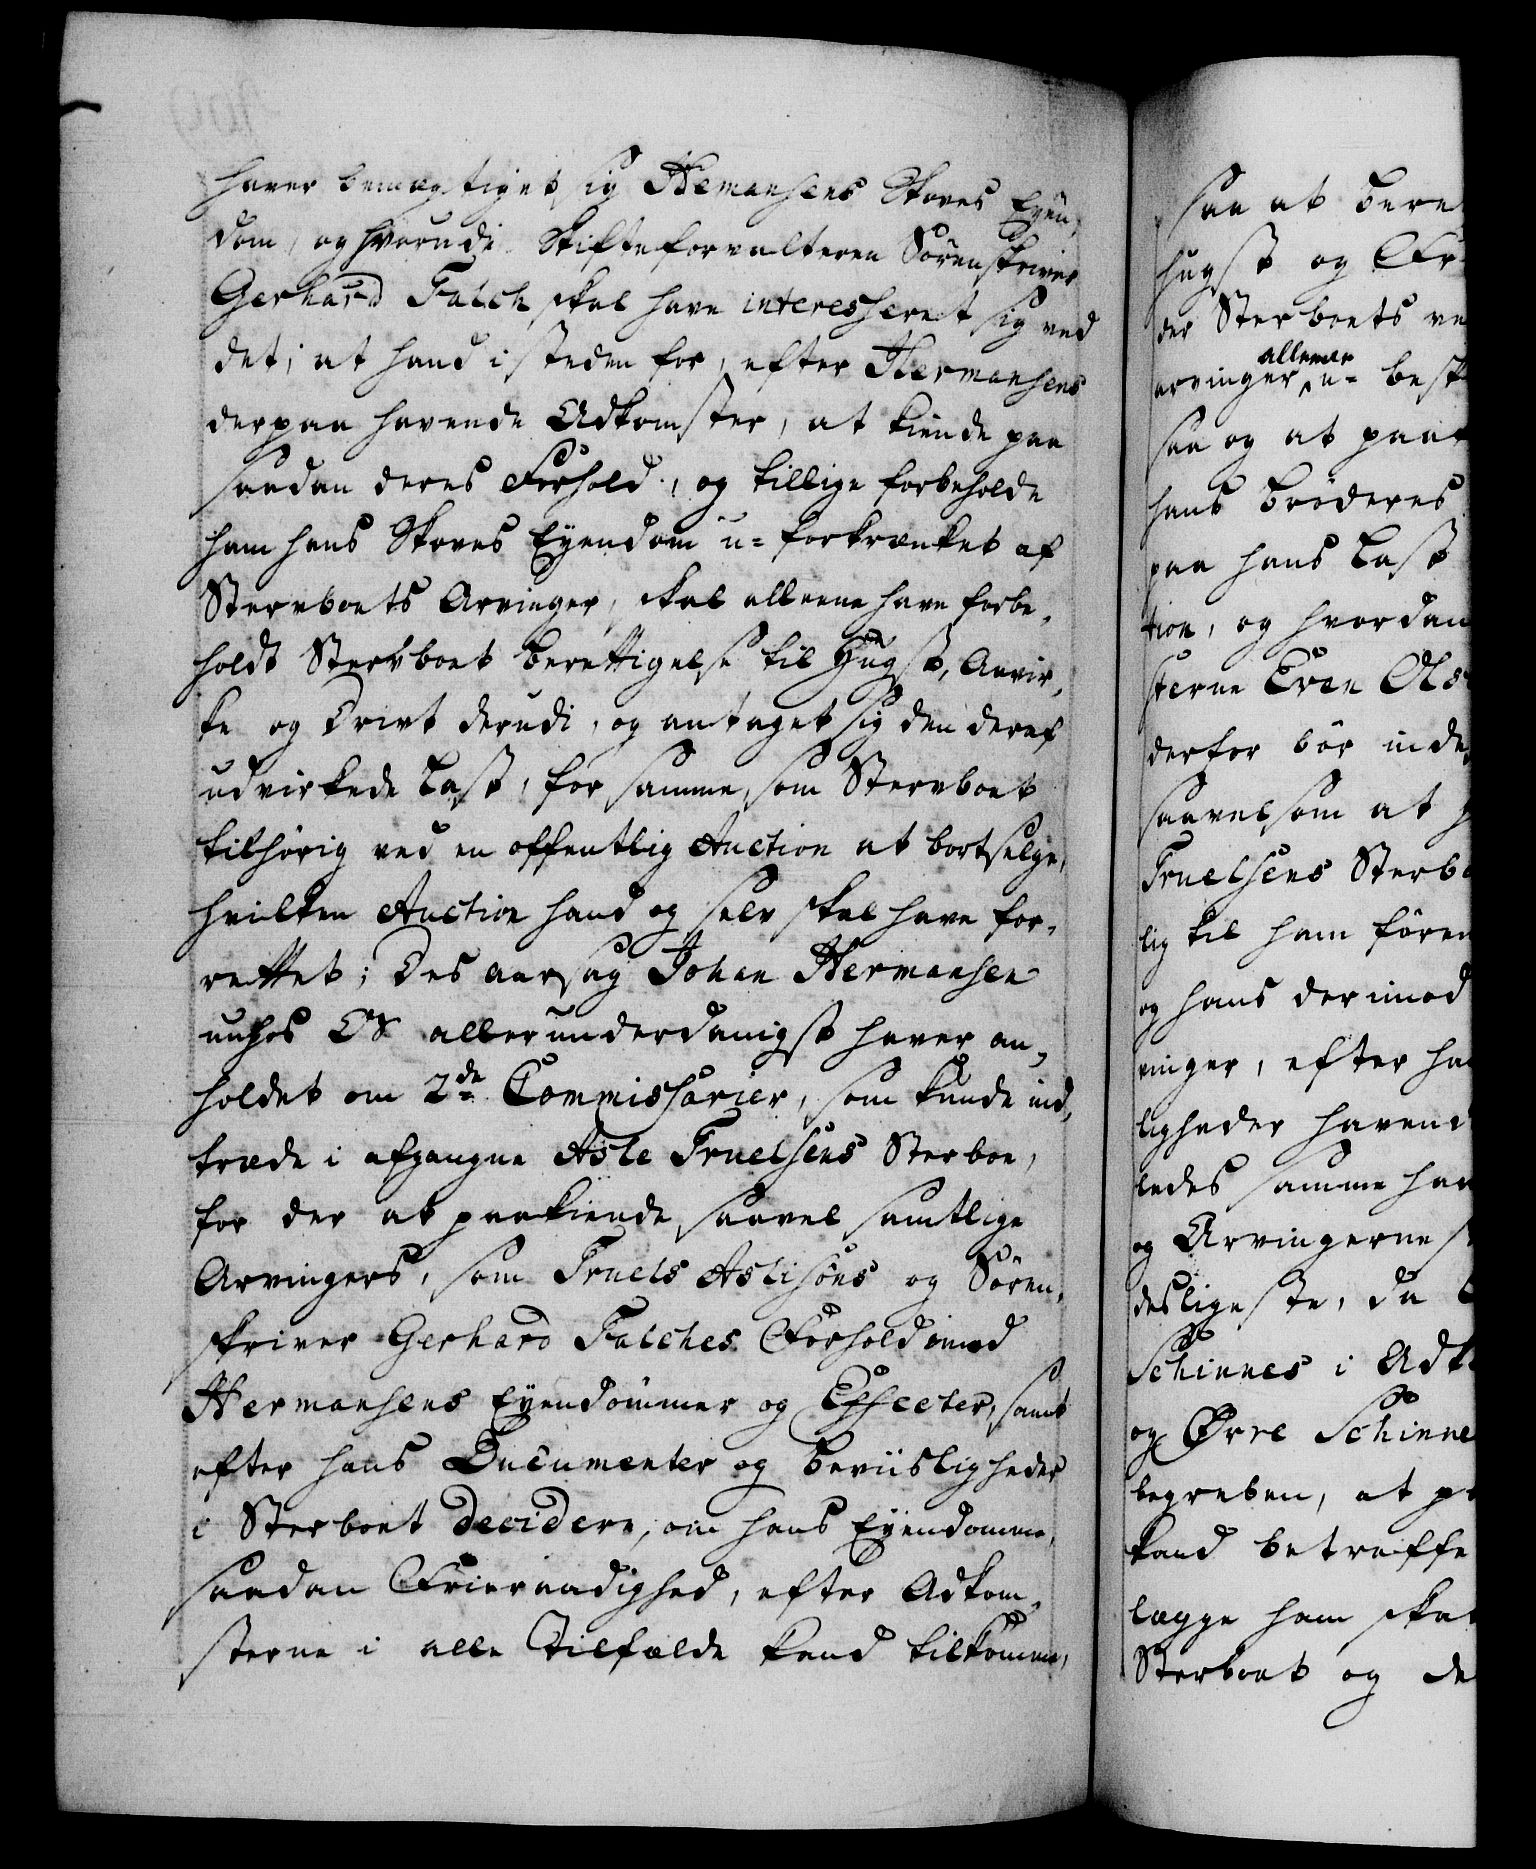 haver bemægtiget sig Hemansens Skoves Eyen-
dom, og hvorudi Skifteforvalteren Sorenskriver
Gerhard Falch skal have interesseret sig ved
det, at hand i steden for, efter Hermansens
derpaa havende Adkomster, at kiende paa
saadan deres Forhold, og tillige forbeholde
ham hans Skoves Eyendom u-forkrænket af
Stervboets Arvinger, skal alleene have forbe-
holdt Stervboet berettigelse til Hugst, Anvir-
ke og Drivt derudi, og antaget sig den deraf
udvirkede Last, for samme, som Stervboet
tilhørig ved en offentlig Auction at bortselge,
hvilken Auction hand og selv skal have for-
rettet; Des aarsag Johan Hermansen
nu hos Os allerunderdanigst haver an-
holdet om 2de Commissarier, som kunde ind-
træde i afgangne Asle Truelsens Sterboe,
for der at paakiende, saavel samtlige
Arvingers, som Truels Aslisöns og Sören-
skriver Gerhard Falches Forhold imod
Hermansens Eyendommer og Effecter, samt
efter hans Documenter og beviisligheder
i Sterboet decidere, om hans Eyendomme,
saadan Frieraadighed, efter Adkom-
sterne i alle Tilfælde kand tilkomme,
saa at bere
hugst og Fr
der Sterboets ve
allene
arvinger u- besk
saa og at paa
hans Bröderes
paa hans Last
tion, og hvordan
sterne Even Ols
derfor bör inde
saavelsom at
Truelsens Sterb
lig til ham fören
og hans derimod
vinger, efter ha
ligheder havend
ledes samme har
og Arvingerne
desligeste, da
Schinnes i Adk
og Ørre Schinne
begreben, at p
kand betreffe
lægge ham ska
Sterboet og de